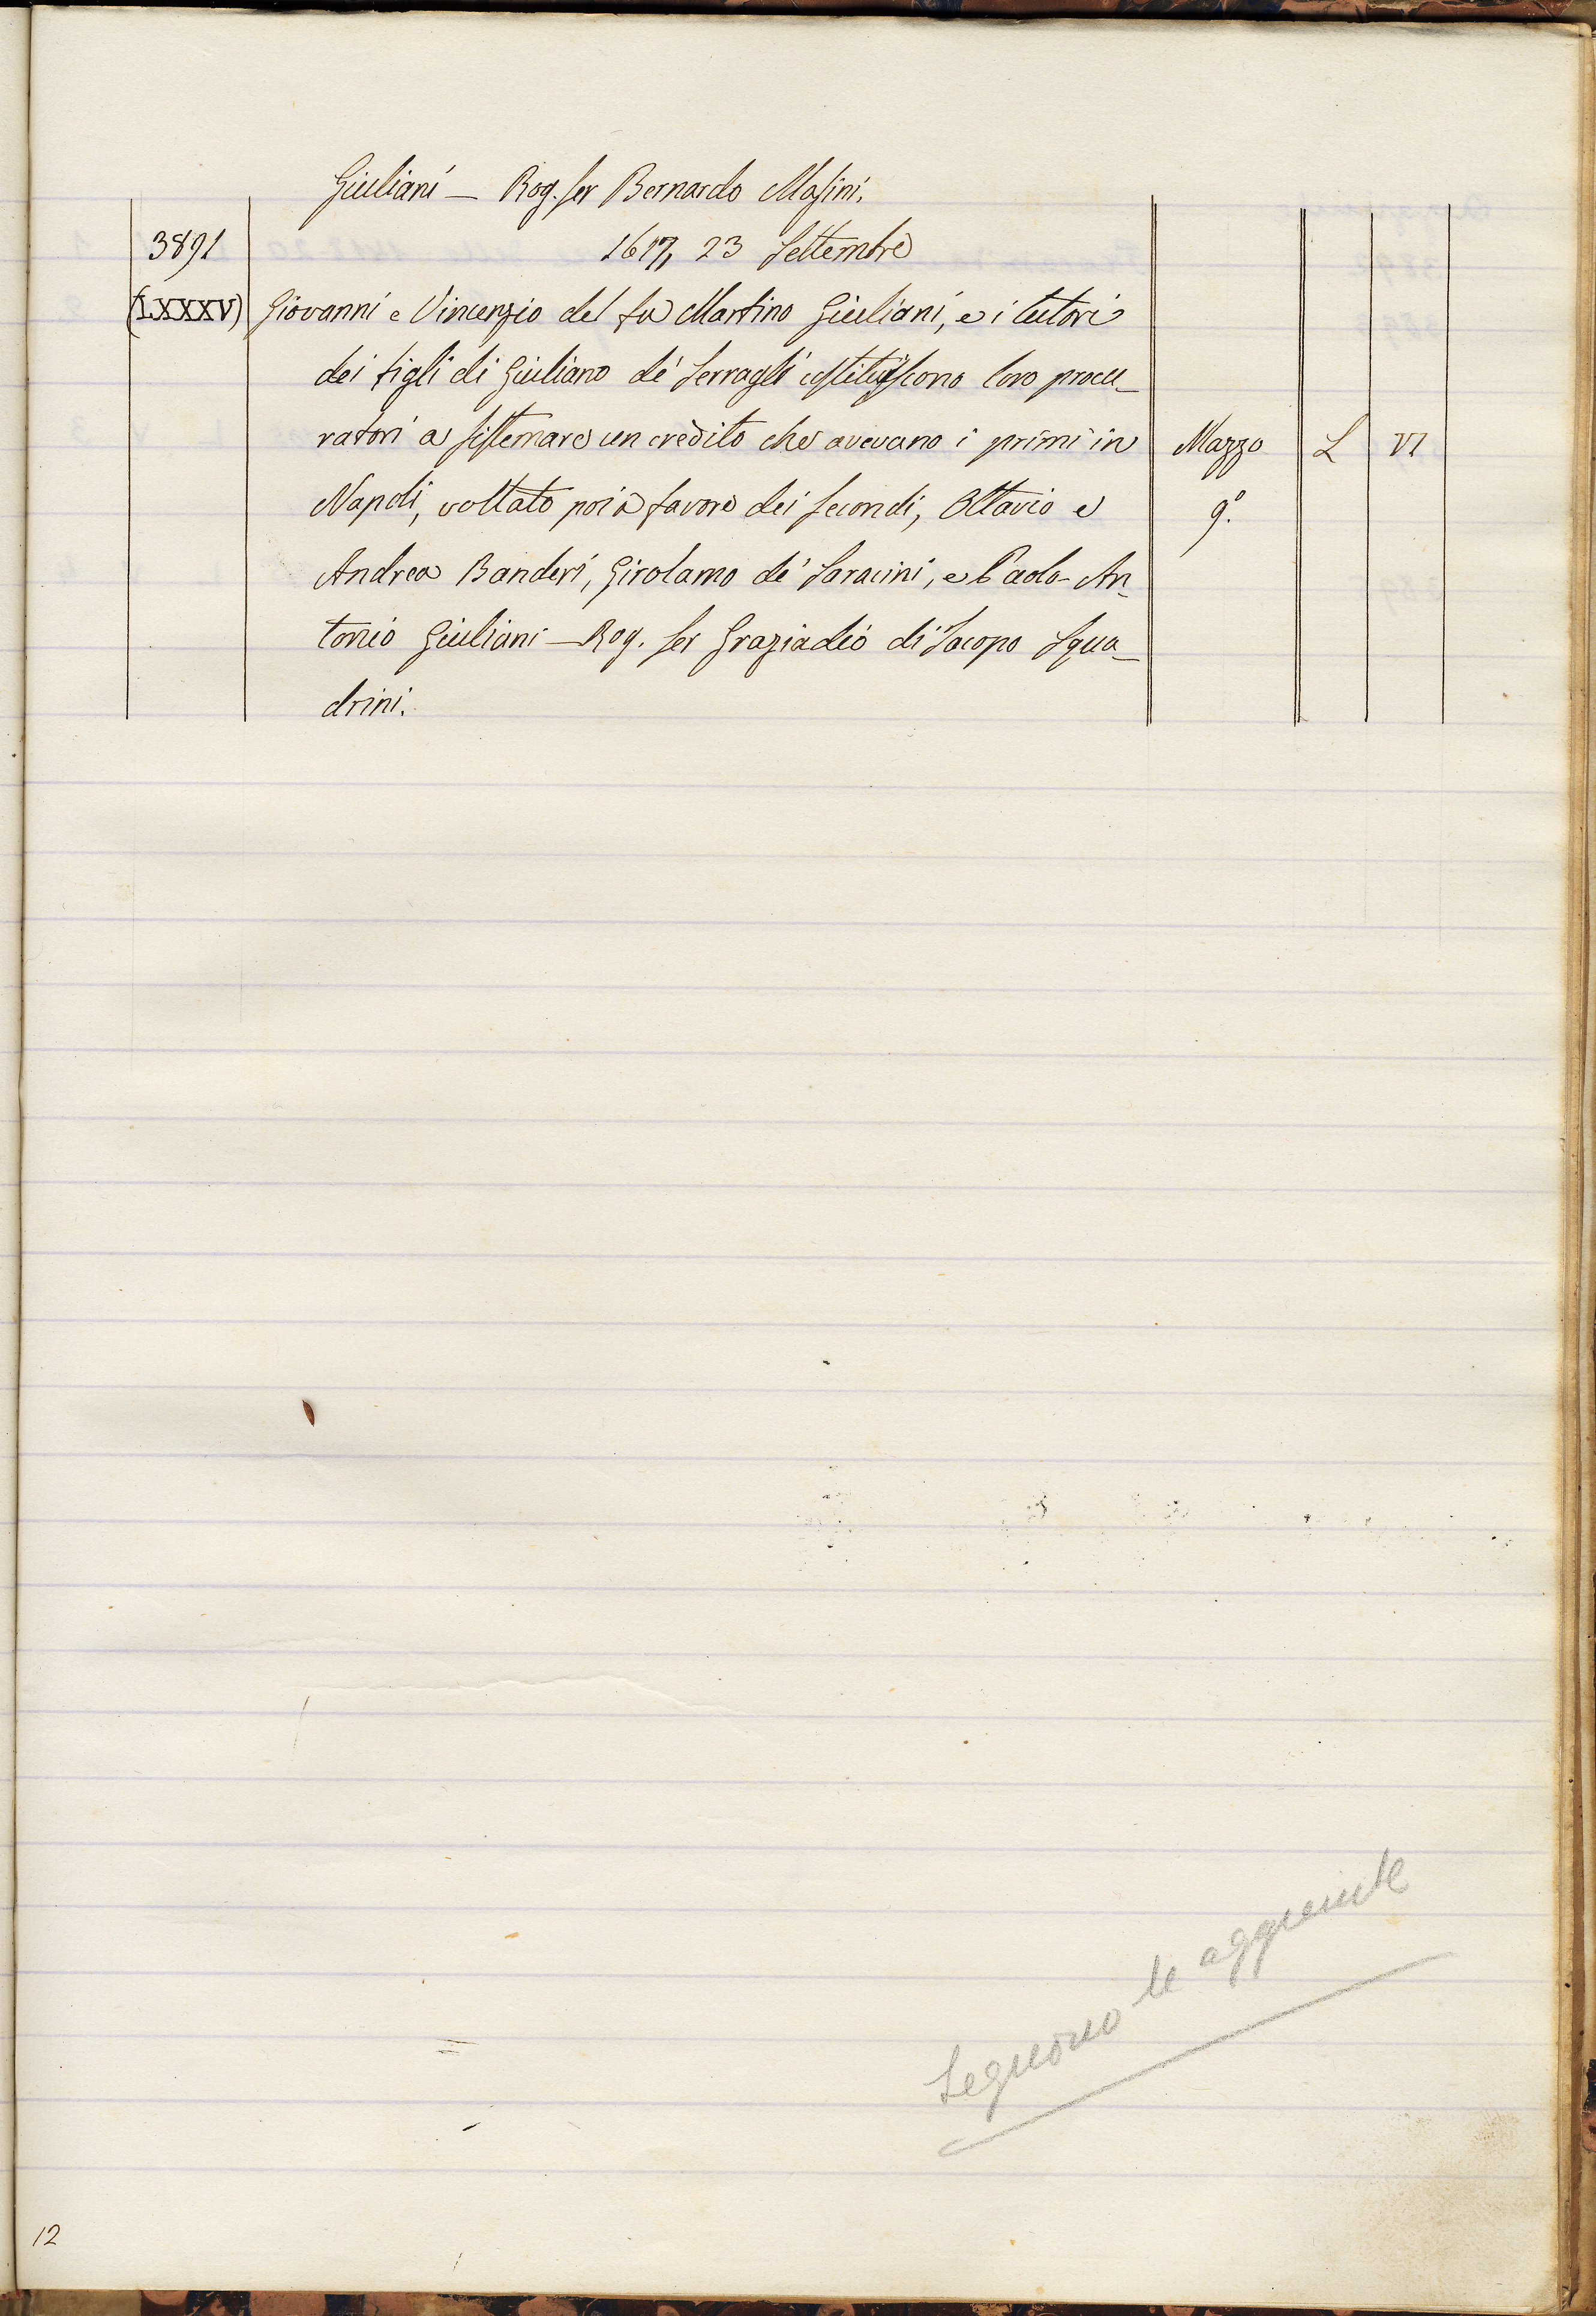 Giuliani — Rog. ser Bernardo Masini.
3891
1617, 23 Settembre
(LXXXV) Giovanni e Vincenzio del fu Martino Giuliani, e i tutori
dei figli di Giuliano de' Serragli costituiscono loro procu-
ratori a sistemare un credito che avevano i primi in
Mazzo L VI
Napoli, voltato poi a favore dei secondi, Ottavio e
9.º
Andrea Banderi, Girolamo de' Saracini, e Paolo-An-
tonio Giuliani — Rog. ser Graziadio di Jacopo Squa-
drini.
Seguono le aggiunte
12